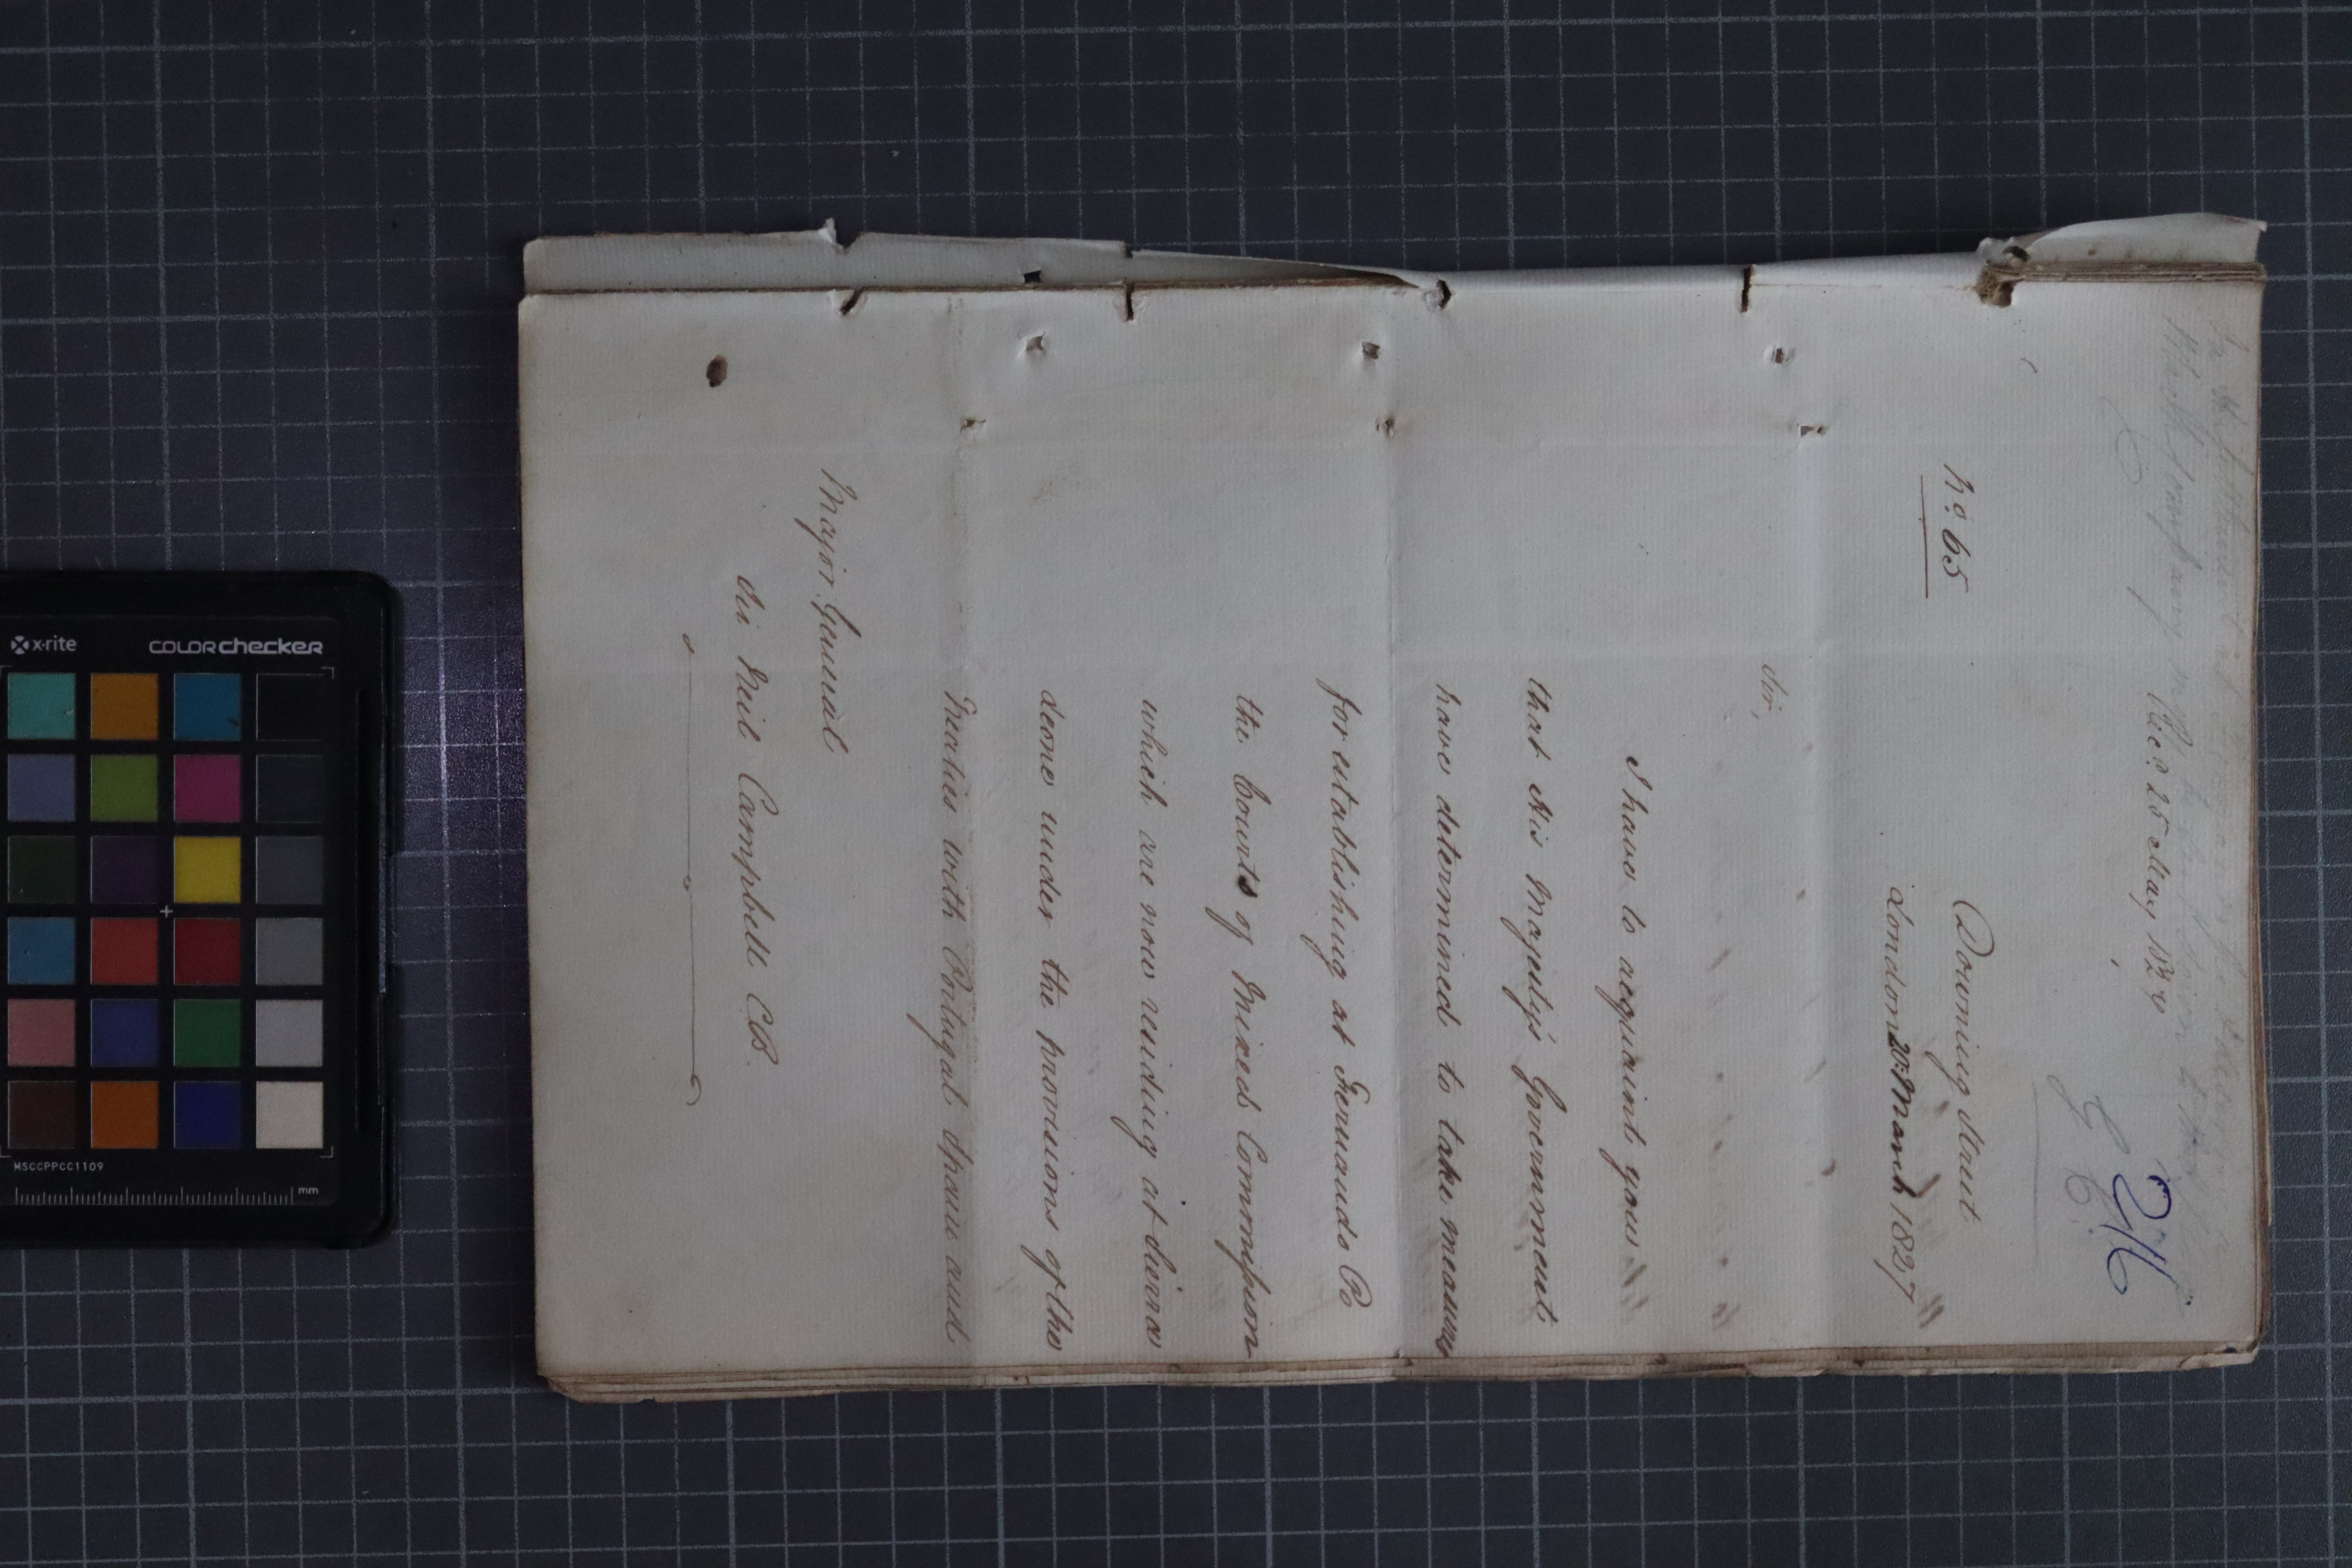 Rec.d 25 May 1827
216
No. 65
Downing Street
London 20: March 1827
Sir,
I have to acquaint you
that His Majesty's Government
have determined to take measures
for establishing at Fernando Po
the Courts of Mixed Commission
which are now residing at Sierra
Leone under the provisions of the
Treaties with Portugal Spain and
Major General
Sir Neil Campbell CB.
x-rite
COLORchecker
MSCCPPCC1109
mm